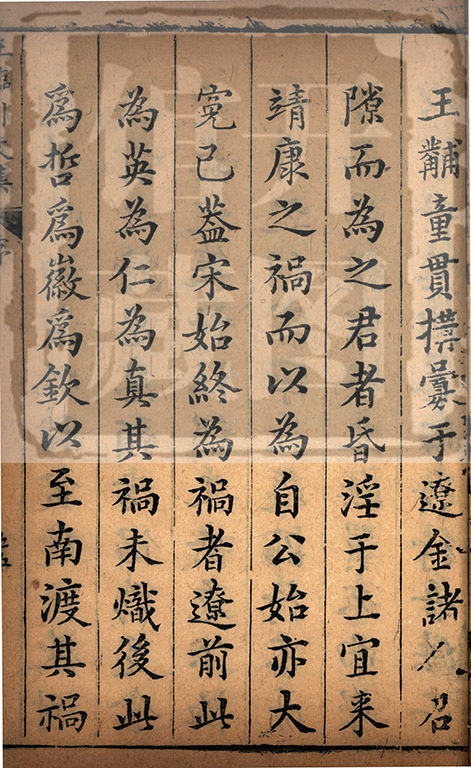 王黼童貫搆釁于遼金諸人召
隙而為之君者昏淫于上宜来
靖康之禍而以為自公始亦大
寃已葢宋始終為禍者遼前此
為英為仁為真其禍未熾後此
爲哲爲徽爲欽以至南渡其禍
臨川文集
序